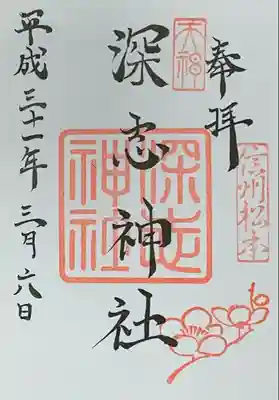 奉拝
信州松本
天神
深志神社
深志神社
平成三十一年三月六日